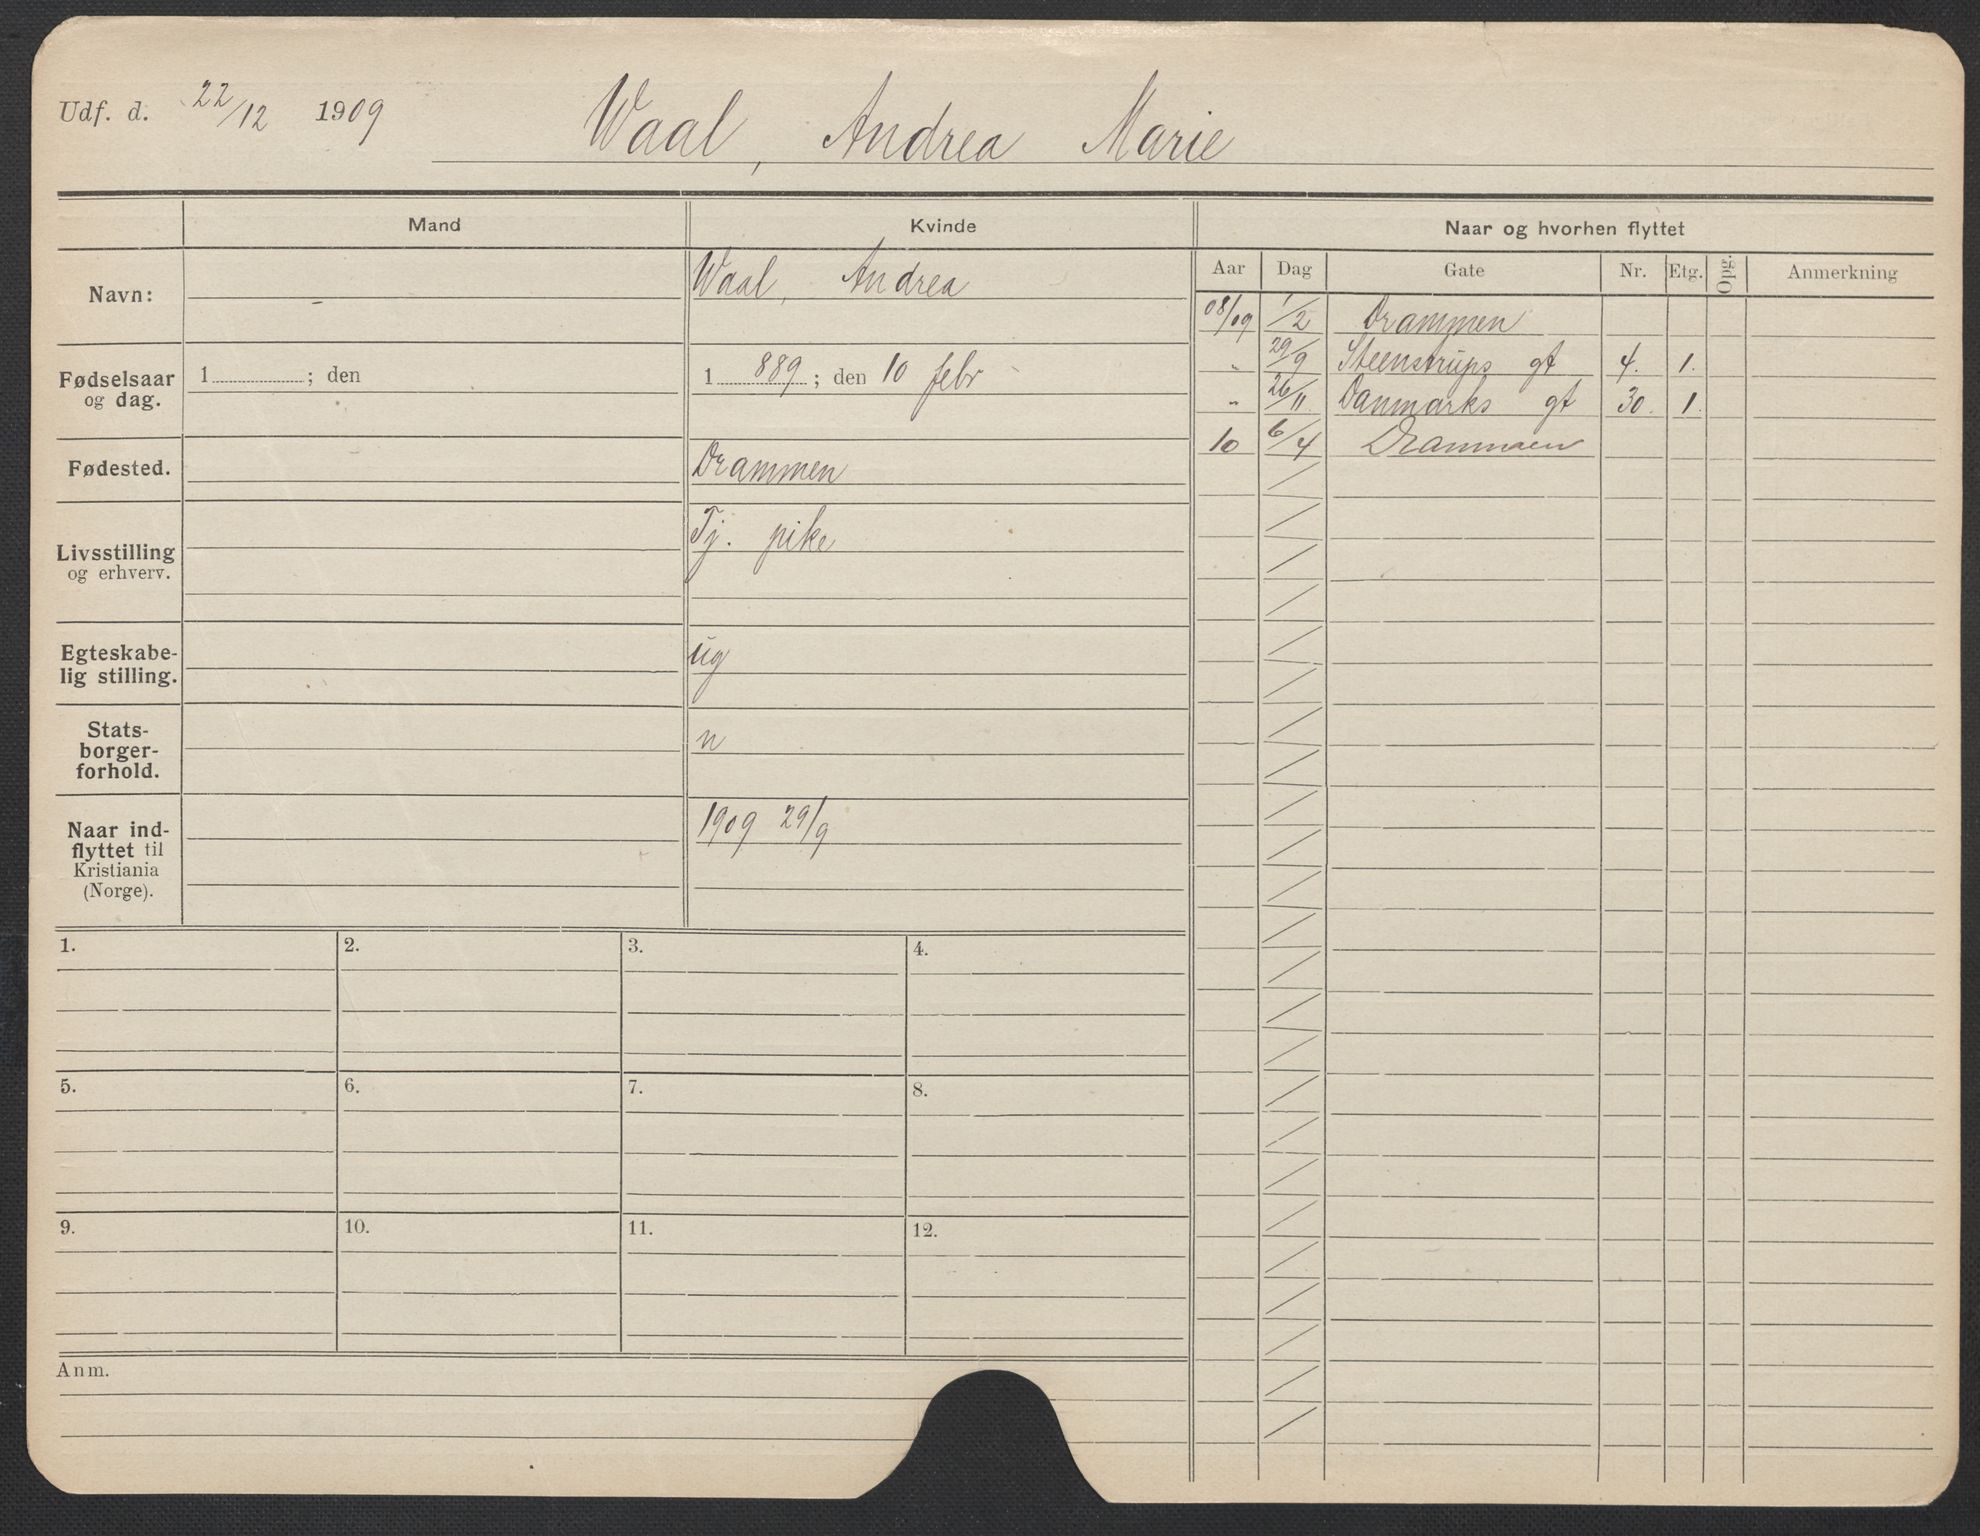 Udf. d. 22/12 1909 Waal, Andrea Marie
Mand Kvinde Naar og hvorhen flyttet
Aar Dag Gate Nr. Etg. Opg. Anmerkning
Navn: Waal, Andrea
Fødselsaar og dag. 1 ; den 1 889 ; den 10 febr
Fødested. Drammen
Livsstilling og erhverv. Tj. pike
Egteskabe-
lig stilling. ug
Stats-
borger-
forhold. n
Naar ind-
flyttet til
Kristiania
(Norge). 1909 29/9
08/09 1/2 Drammen
" 29/9 Steenstrups gt 4. 1.
" 26/11 Danmarks gt 30. 1.
10 6/4 Drammen
1. 2. 3. 4.
5. 6. 7. 8.
9. 10. 11. 12.
Anm.